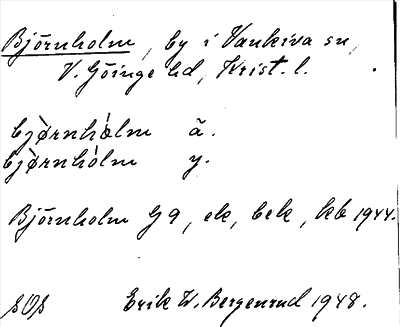 Björnholm, by i Vankiva sn,
V. Göinge hd, Krist. l.
bjòrnhàlm ä.
bjòrnhòlm y.
Björnholm G 9, ek, bek, kb 1944.
Erik W. Bergenrud 1948.